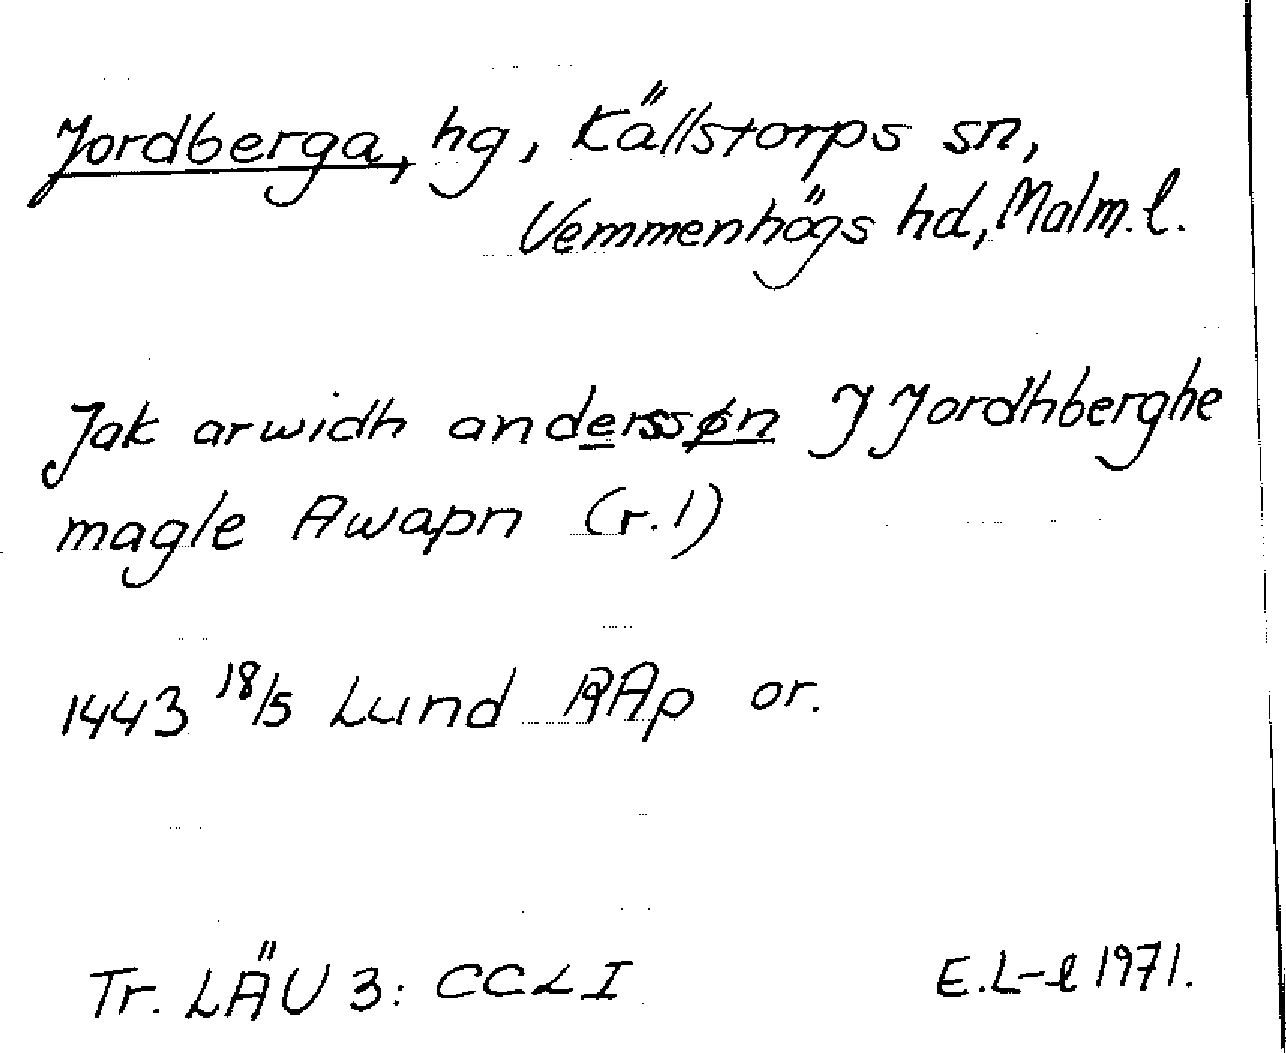 Jordberga, hg, Källstorps sn,
Vemmenhögs hd, Malm. l.
Jak arwidh anderssøn J Jordhberghe
magle Awapn (r. 1)
1443 18/5 Lund RAp or.
Tr. LÄU 3: CCLI
E. L-l 1971.